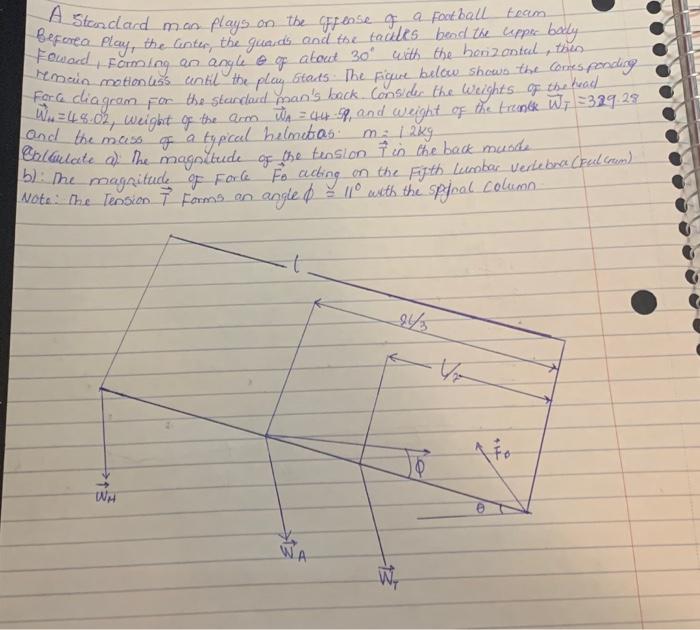 A Standard man plays on the offense of a football team
Before a Play, the Center, the guards and the tackles bend the upper body
Foward, Forming an angle θ of about 30° with the horizontal, then
remain motionless until the play starts. The Figure below shows the Corresponding
Force diagram For the standard man's back. Consider the weights of the head
W⃗H = 48.02, weight of the arm W⃗A = 44.59, and weight of the trunk W⃗T = 329.28
and the mass of a typical helmet m = 1.2kg
Calculate a) The magnitude of the tension T⃗ in the back muscle
b): The magnitude of Force F⃗o acting on the Fifth Lumbar Vertebra (Fulcrum)
Note: The Tension T⃗ Forms an angle ϕ = 11° with the spinal column
L
2L/3
L/2
F⃗o
ϕ
θ
W⃗H
W⃗A
W⃗T